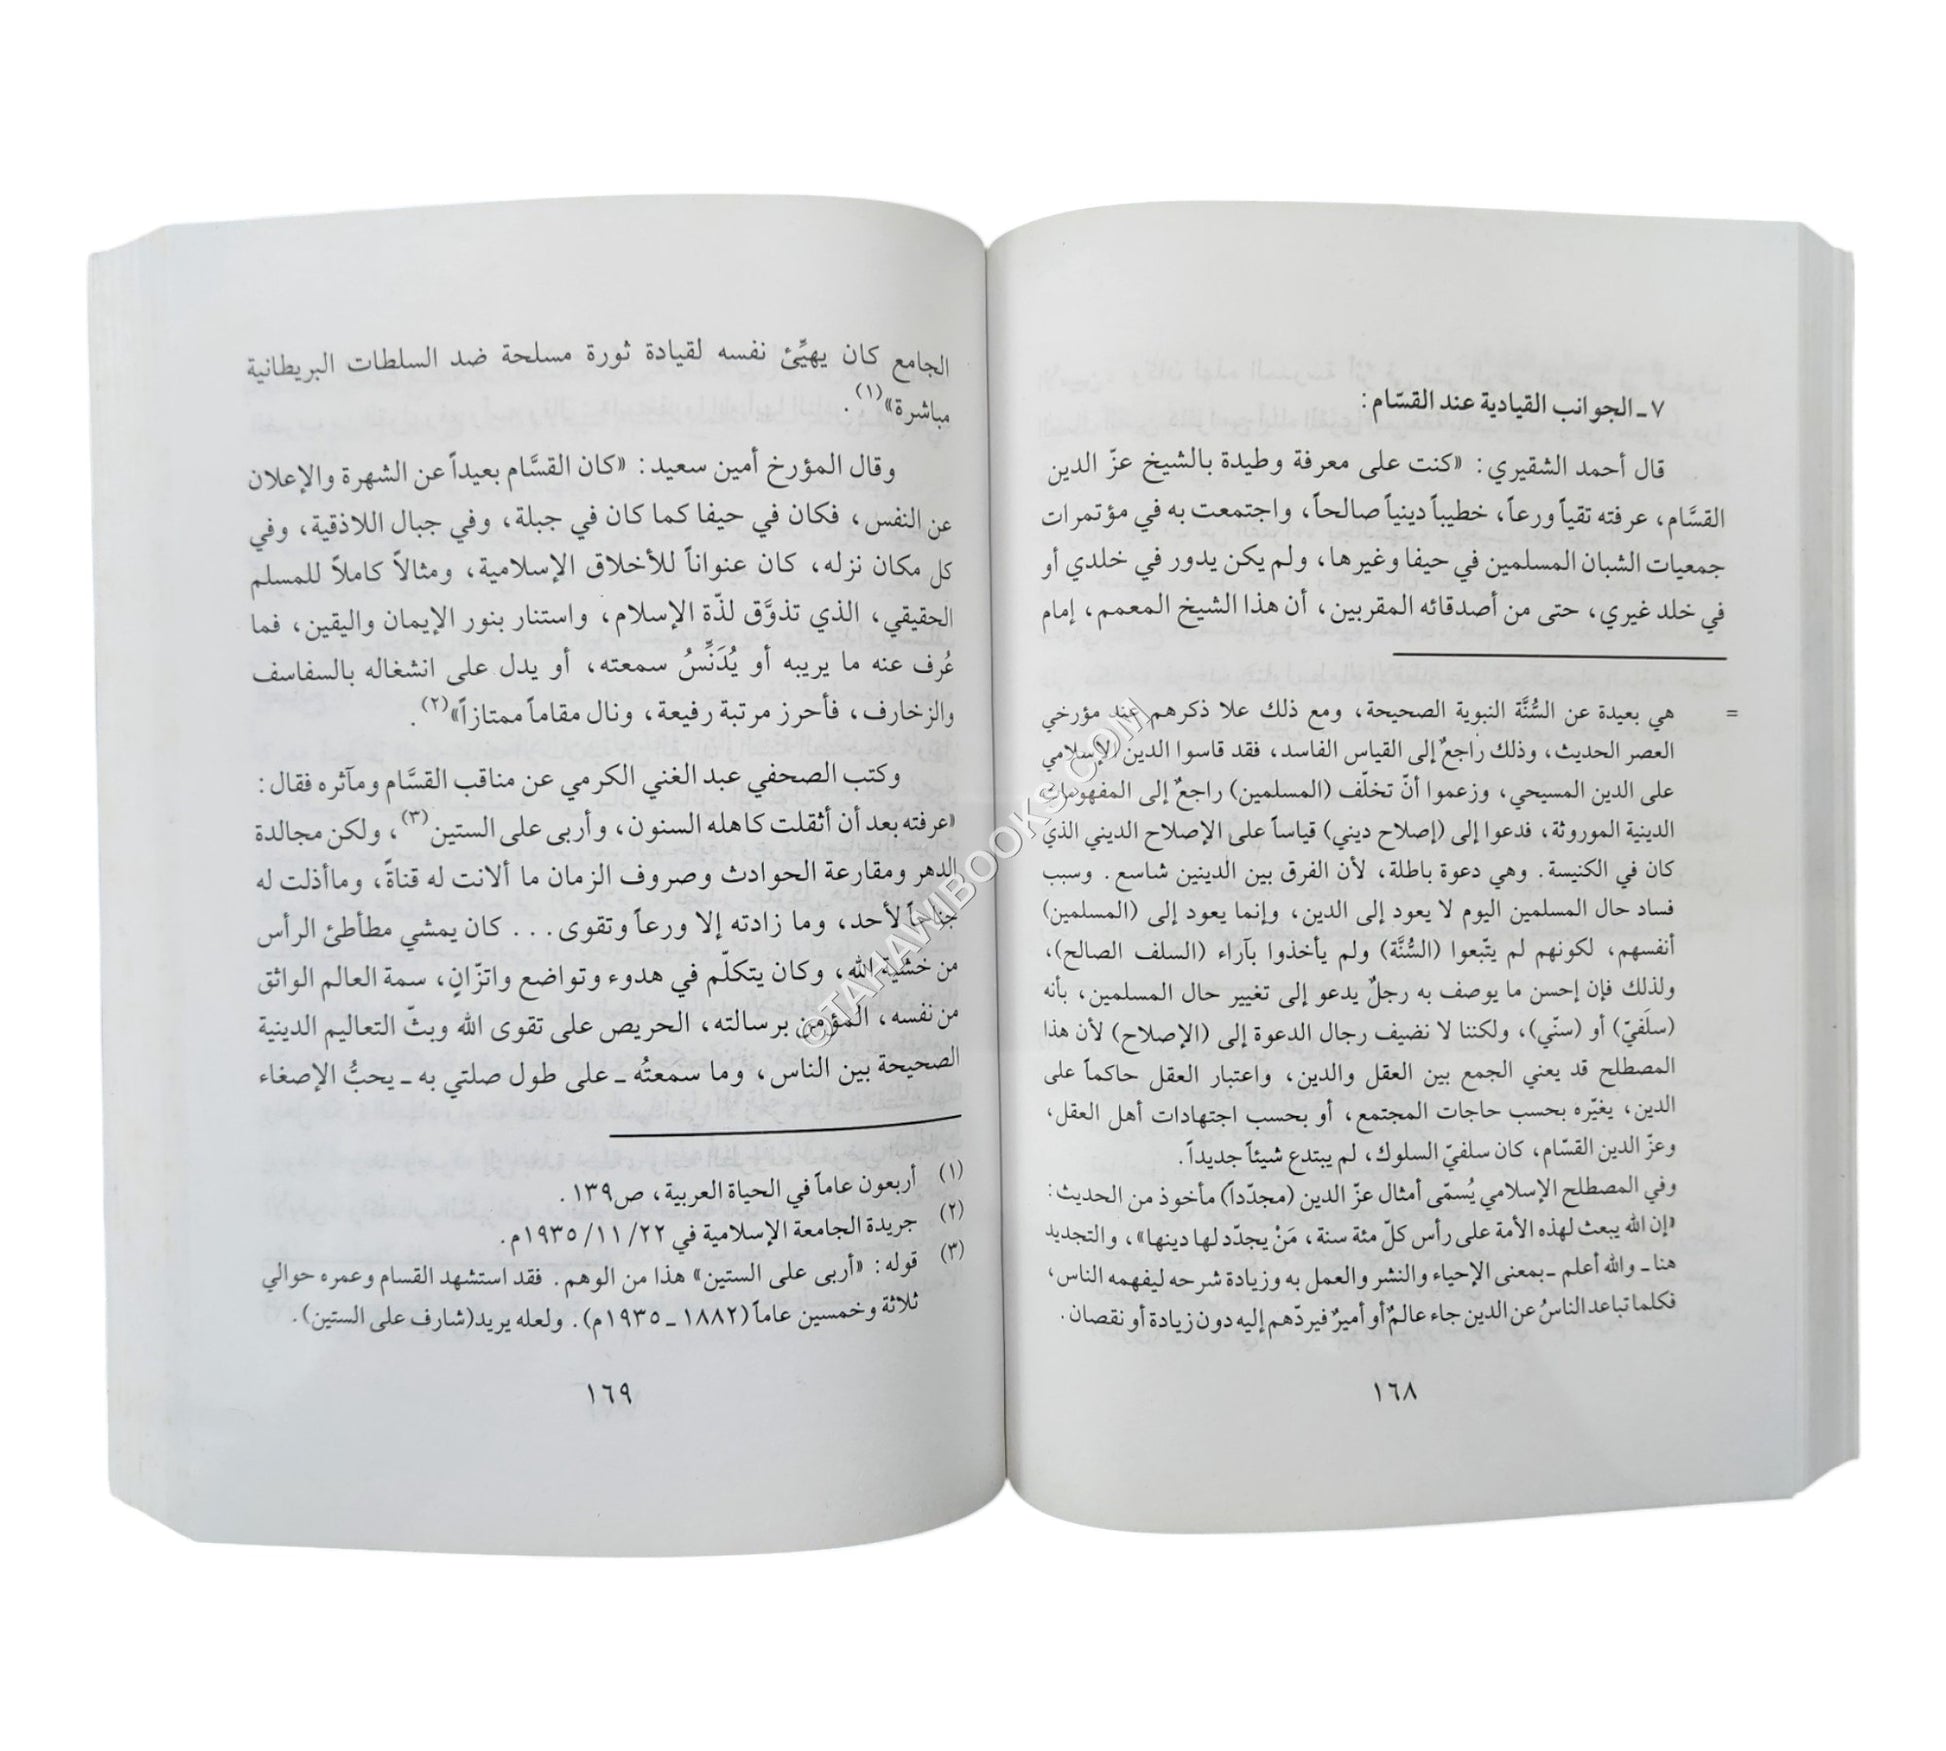 ٧ـ الجوانب القيادية عند القسّام:
قال أحمد الشقيري: «كنت على معرفة وطيدة بالشيخ عزّ الدين
القسَّام، عرفته تقياً ورعاً، خطيباً دينياً صالحاً، واجتمعت به في مؤتمرات
جمعيات الشبان المسلمين في حيفا وغيرها، ولم يكن يدور في خلدي أو
في خلد غيري، حتى من أصدقائه المقربين، أن هذا الشيخ المعمم، إمام
= هي بعيدة عن السُّنَّة النبوية الصحيحة، ومع ذلك علا ذكرهم عند مؤرخي
العصر الحديث، وذلك راجعٌ إلى القياس الفاسد، فقد قاسوا الدين الإسلامي
على الدين المسيحي، وزعموا أنّ تخلّف (المسلمين) راجعٌ إلى المفهومات
الدينية الموروثة، فدعوا إلى (إصلاح ديني) قياساً على الإصلاح الديني الذي
كان في الكنيسة. وهي دعوة باطلة، لأن الفرق بين الدينين شاسع. وسبب
فساد حال المسلمين اليوم لا يعود إلى الدين، وإنما يعود إلى (المسلمين)
أنفسهم، لكونهم لم يتّبعوا (السُّنَّة) ولم يأخذوا بآراء (السلف الصالح)،
ولذلك فإن إحسن ما يوصف به رجلٌ يدعو إلى تغيير حال المسلمين، بأنه
(سلَفيّ) أو (سنّي)، ولكننا لا نضيف رجال الدعوة إلى (الإصلاح) لأن هذا
المصطلح قد يعني الجمع بين العقل والدين، واعتبار العقل حاكماً على
الدين، يغيّره بحسب حاجات المجتمع، أو بحسب اجتهادات أهل العقل،
وعزّ الدين القسّام، كان سلفيّ السلوك، لم يبتدع شيئاً جديداً.
وفي المصطلح الإسلامي يُسمّى أمثال عزّ الدين (مجدّداً) مأخوذ من الحديث:
«إن الله يبعث لهذه الأمة على رأس كلّ مئة سنة، مَنْ يجدّد لها دينها»، والتجديد
هنا ـ والله أعلم ـ بمعنى الإحياء والنشر والعمل به وزيادة شرحه ليفهمه الناس،
فكلما تباعد الناسُ عن الدين جاء عالمٌ أو أميرٌ فيردّهم إليه دون زيادة أو نقصان.
١٦٨
الجامع كان يهيِّئ نفسه لقيادة ثورة مسلحة ضد السلطات البريطانية
مباشرة»(١).
وقال المؤرخ أمين سعيد: «كان القسَّام بعيداً عن الشهرة والإعلان
عن النفس، فكان في حيفا كما كان في جبلة، وفي جبال اللاذقية، وفي
كل مكان نزله، كان عنواناً للأخلاق الإسلامية، ومثالاً كاملاً للمسلم
الحقيقي، الذي تذوَّق لذّة الإسلام، واستنار بنور الإيمان واليقين، فما
عُرف عنه ما يريبه أو يُدَنِّسُ سمعته، أو يدل على انشغاله بالسفاسف
والزخارف، فأحرز مرتبة رفيعة، ونال مقاماً ممتازاً»(٢).
وكتب الصحفي عبد الغني الكرمي عن مناقب القسَّام ومآثره فقال:
«عرفته بعد أن أثقلت كاهله السنون، وأربى على الستين(٣)، ولكن مجالدة
الدهر ومقارعة الحوادث وصروف الزمان ما ألانت له قناةً، وما أذلت له
جناحاً لأحد، وما زادته إلا ورعاً وتقوى... كان يمشي مطأطئ الرأس
من خشية الله، وكان يتكلّم في هدوء وتواضع واتزّانٍ، سمة العالم الواثق
من نفسه، المؤمن برسالته، الحريص على تقوى الله وبثّ التعاليم الدينية
الصحيحة بين الناس، وما سمعتُه ـ على طول صلتي به ـ يحبُّ الإصغاء
(١) أربعون عاماً في الحياة العربية، ص١٣٩.
(٢) جريدة الجامعة الإسلامية في ٢٢/١١/١٩٣٥م.
(٣) قوله: «أربى على الستين» هذا من الوهم. فقد استشهد القسام وعمره حوالي
ثلاثة وخمسين عاماً (١٨٨٢ ـ ١٩٣٥م). ولعله يريد(شارف على الستين).
١٦٩
©TAHAWIBOOKS.COM